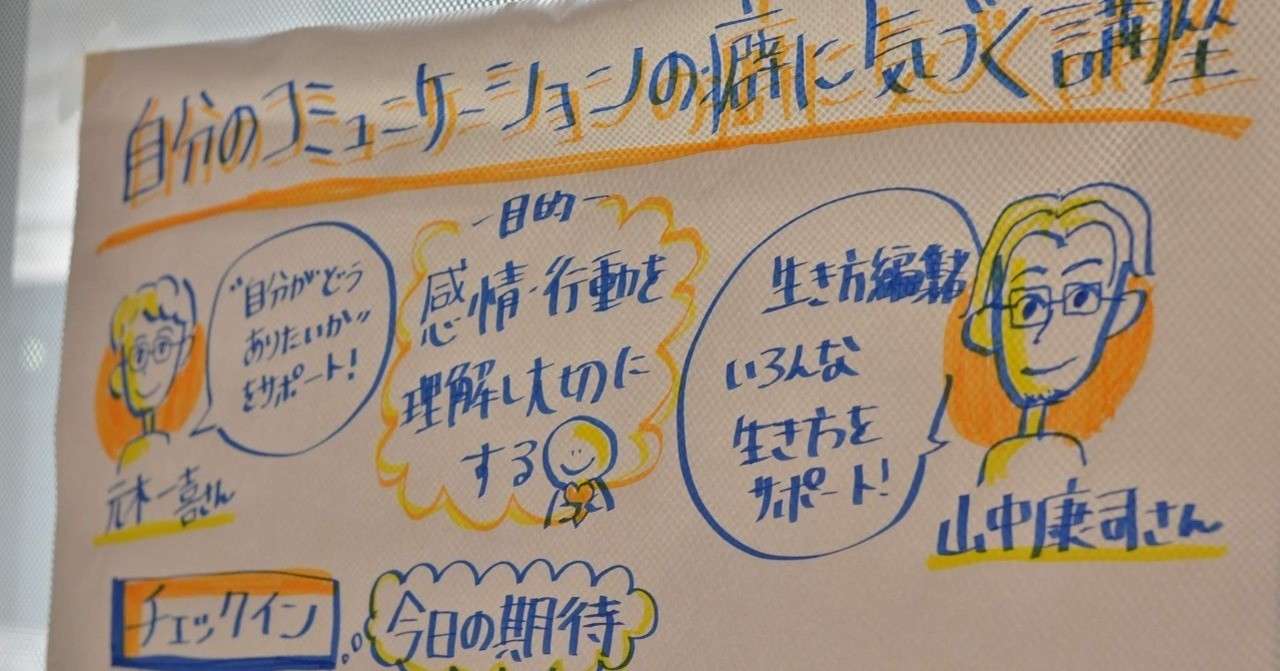 自分のコミュニケーションの癖に気づく講座
"自分がどう
ありたいか"
をサポート!
元木一喜さん
目的
感情・行動を
理解し大切に
する
生き方編集者
いろんな
生き方を
サポート!
山中康司さん
チェックイン
今日の期待